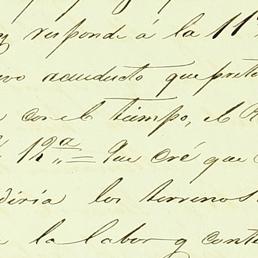 responde á la 11ª
vo acueducto que pret
con el tiempo, el R
12ª = Que cré que
diria los terrenos
a la labor y cont